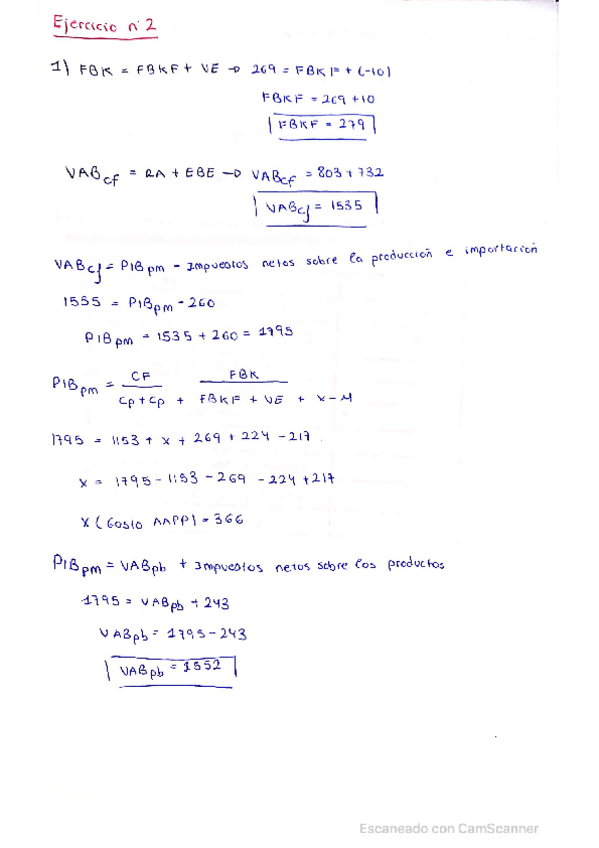 Ejercicio nº2
1) FBK = FBKF + VE → 269 = FBKF + (-10)
FBKF = 269 + 10
FBKF = 279
VABcf = RA + EBE → VABcf = 803 + 732
VABcf = 1535
VABcf = PIBpm - Impuestos netos sobre la producción e importación
1535 = PIBpm - 260
PIBpm = 1535 + 260 = 1795
PIBpm = CF / Cp + Cp + FBK / FBKF + VE + X - M
1795 = 1153 + x + 269 + 224 - 217
x = 1795 - 1153 - 269 - 224 + 217
x (Gasto AAPP) = 366
PIBpm = VABpb + Impuestos netos sobre los productos
1795 = VABpb + 243
VABpb = 1795 - 243
VABpb = 1552
Escaneado con CamScanner